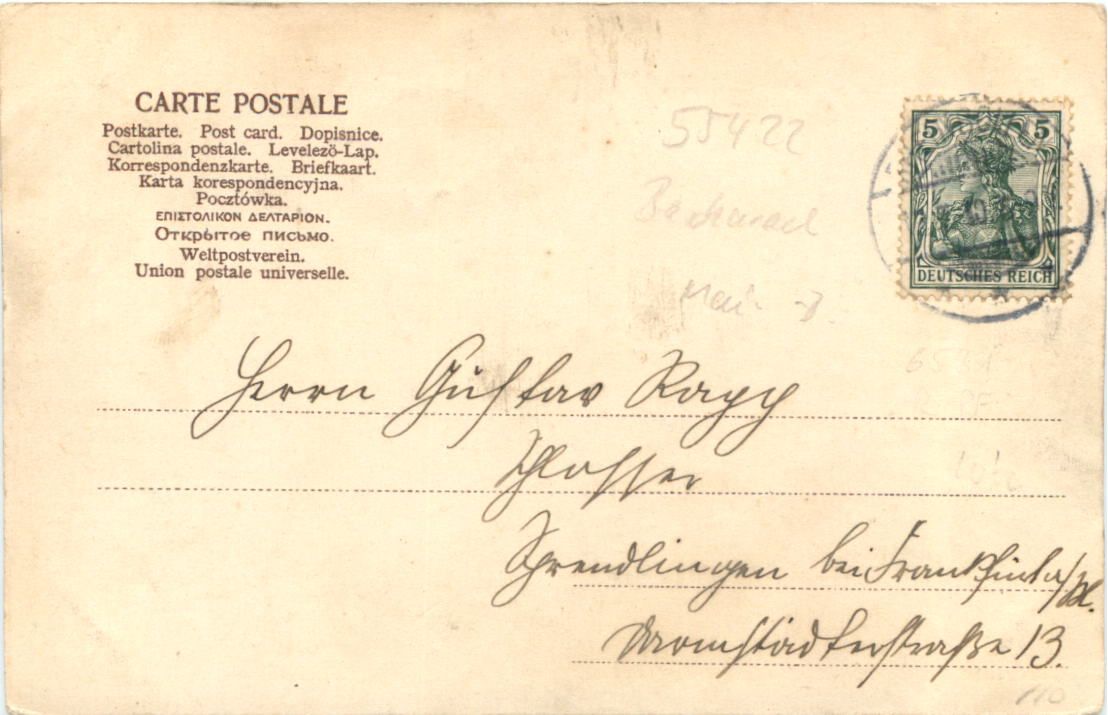 CARTE POSTALE
Postkarte. Post card. Dopisnice.
Cartolina postale. Levelező-Lap.
Korrespondenzkarte. Briefkaart.
Karta korespondencyjna.
Pocztówka.
ΕΠΙΣΤΟΛΙΚΟΝ ΔΕΛΤΑΡΙΟΝ.
Открытое письмо.
Weltpostverein.
Union postale universelle.
5 5
DEUTSCHES REICH
55422
Bacharach
Herrn Gustav Rapp
Schlosser
Sprendlingen bei Frankfurt a/M.
Darmstädterstraße 13.
110